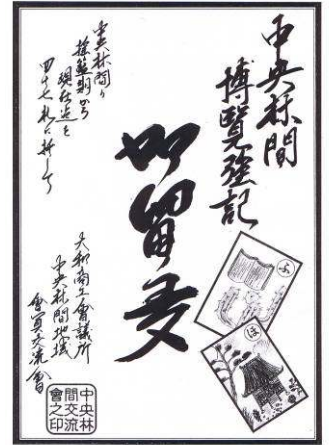 中央林間
博覧強記
加留多
中央林間の
揺籃期から
現在迄を
四十七札に托して
大和商工會議所
中央林間地域
會員交流會
ふ
ほ
中央林
間交流
會之印